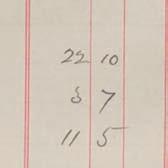 22 10
8 7
11 5